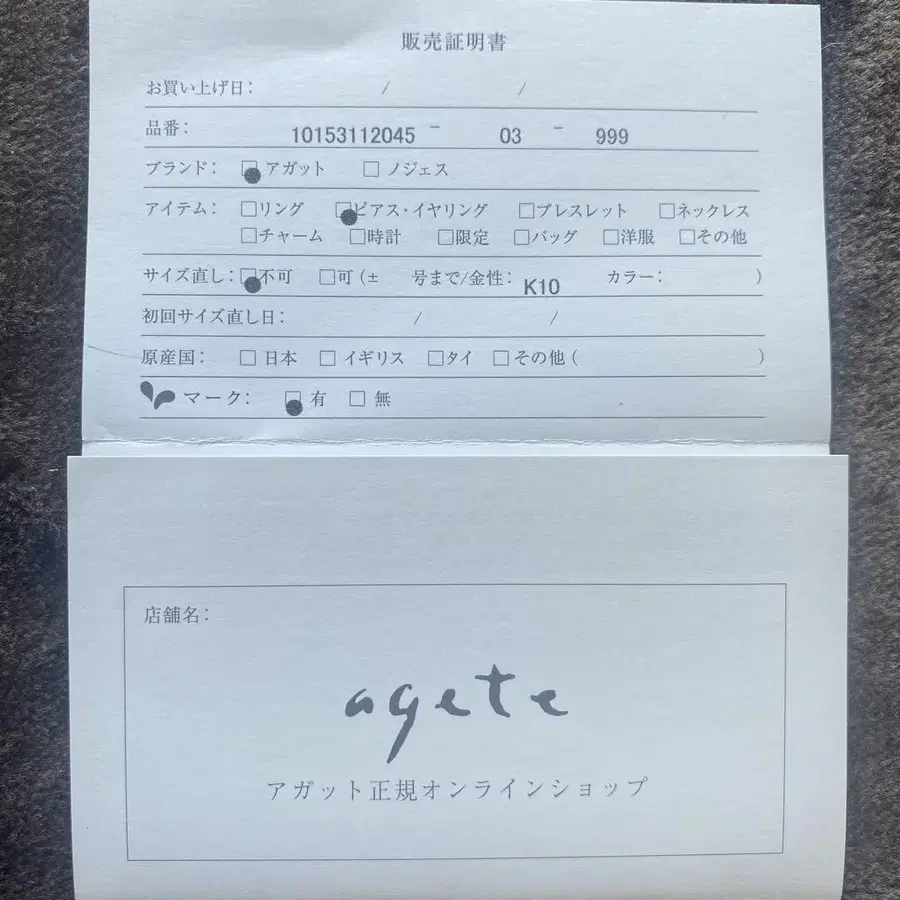 販売証明書
お買い上げ日： / /
品番： 10153112045 － 03 － 999
ブランド： □ アガット □ ノジェス
アイテム： □リング □ピアス・イヤリング □ブレスレット □ネックレス
□チャーム □時計 □限定 □バッグ □洋服 □その他
サイズ直し：□不可 □可（± 号まで/金性： K10 カラー： ）
初回サイズ直し日： / /
原産国： □ 日本 □ イギリス □タイ □その他（ ）
マーク： □ 有 □ 無
店舗名：
agete
アガット正規オンラインショップ